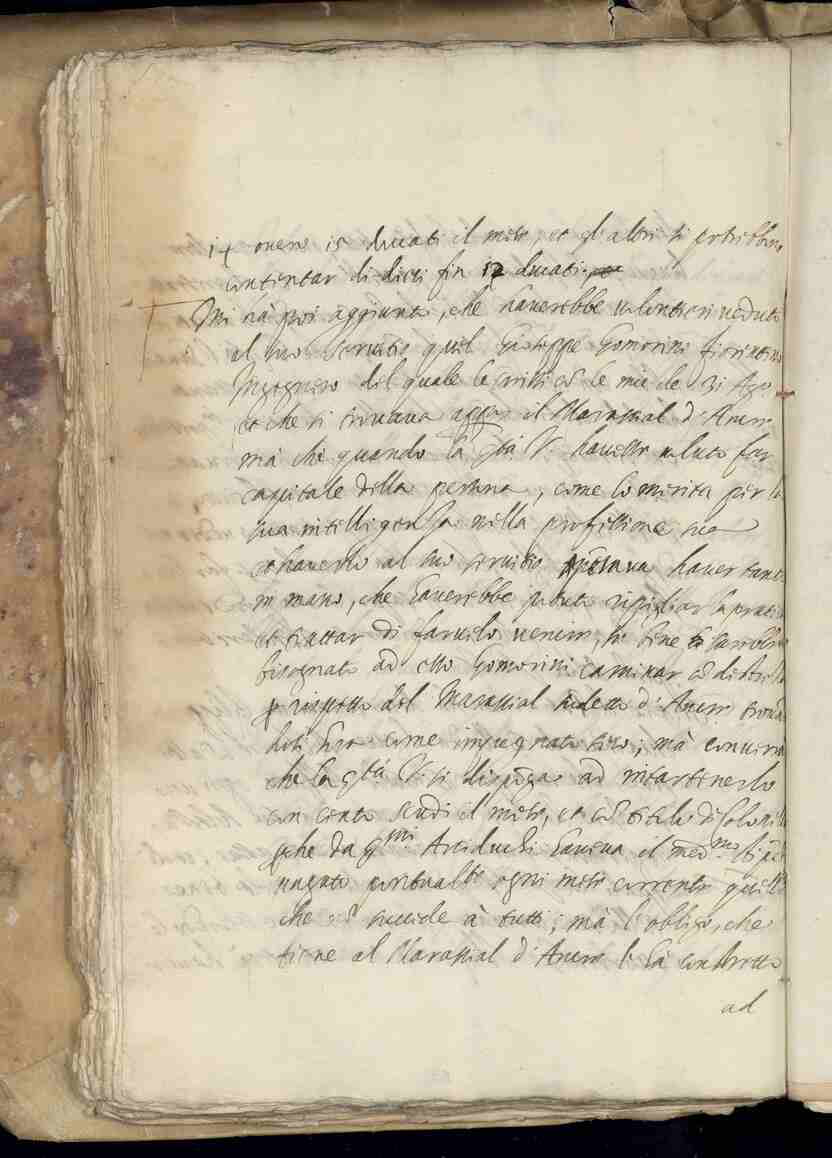 14 overo 15 ducati il mese, et gli altri si potrebbono
contentar di dieci fin 12 ducati
Mi hà poi aggiunto, che haverebbe volontieri veduto
al suo servitio quel Gioseppe Gomorini fiorentino
Ingegnero del quale le scrissi cō le mie de 31 Ago
et che si trovava app.o il Marascial d'Ancre
mà che quando la S.tà V. havesse voluto far
capitale della persona, come lo merita per la
sua intelligenza nella professione sua
et haverlo al suo servitio haver tanto
in mano, che haverebbe potuto ripigliar la prati
et trattar di farvelo venire, se bene sarebbe
bisognato ad esso Gomorini caminar cō
rispetto del Marascial d'Ancre
come impegnato seco; mà
che la S.tà V. si disponga ad intartenerlo
con cento scudi il mese, et cō titolo di
che da Arciduchi haveva il med.mo
pagato pontualte ogni mese corrente
che nō succede à tutti; mà l'obligo, che
tiene al Marascial d'Ancre l'hà condotto
ad